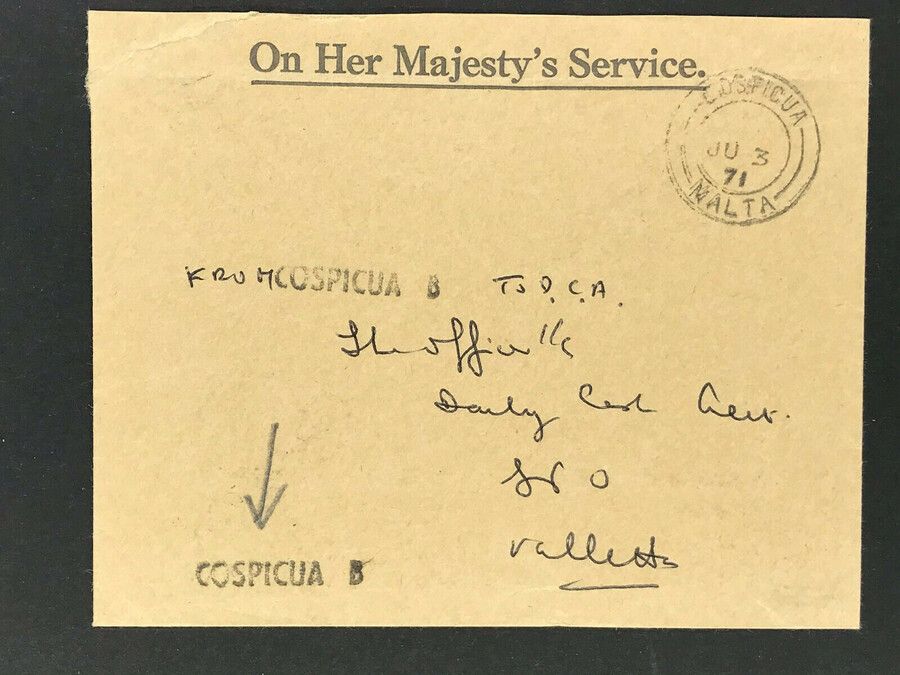 On Her Majesty's Service.
COSPICUA
JU 3
71
MALTA
FROM COSPICUA B To D.C.A.
The Officer i/c
Daily Cash Acct.
G P O
Valletta
COSPICUA B